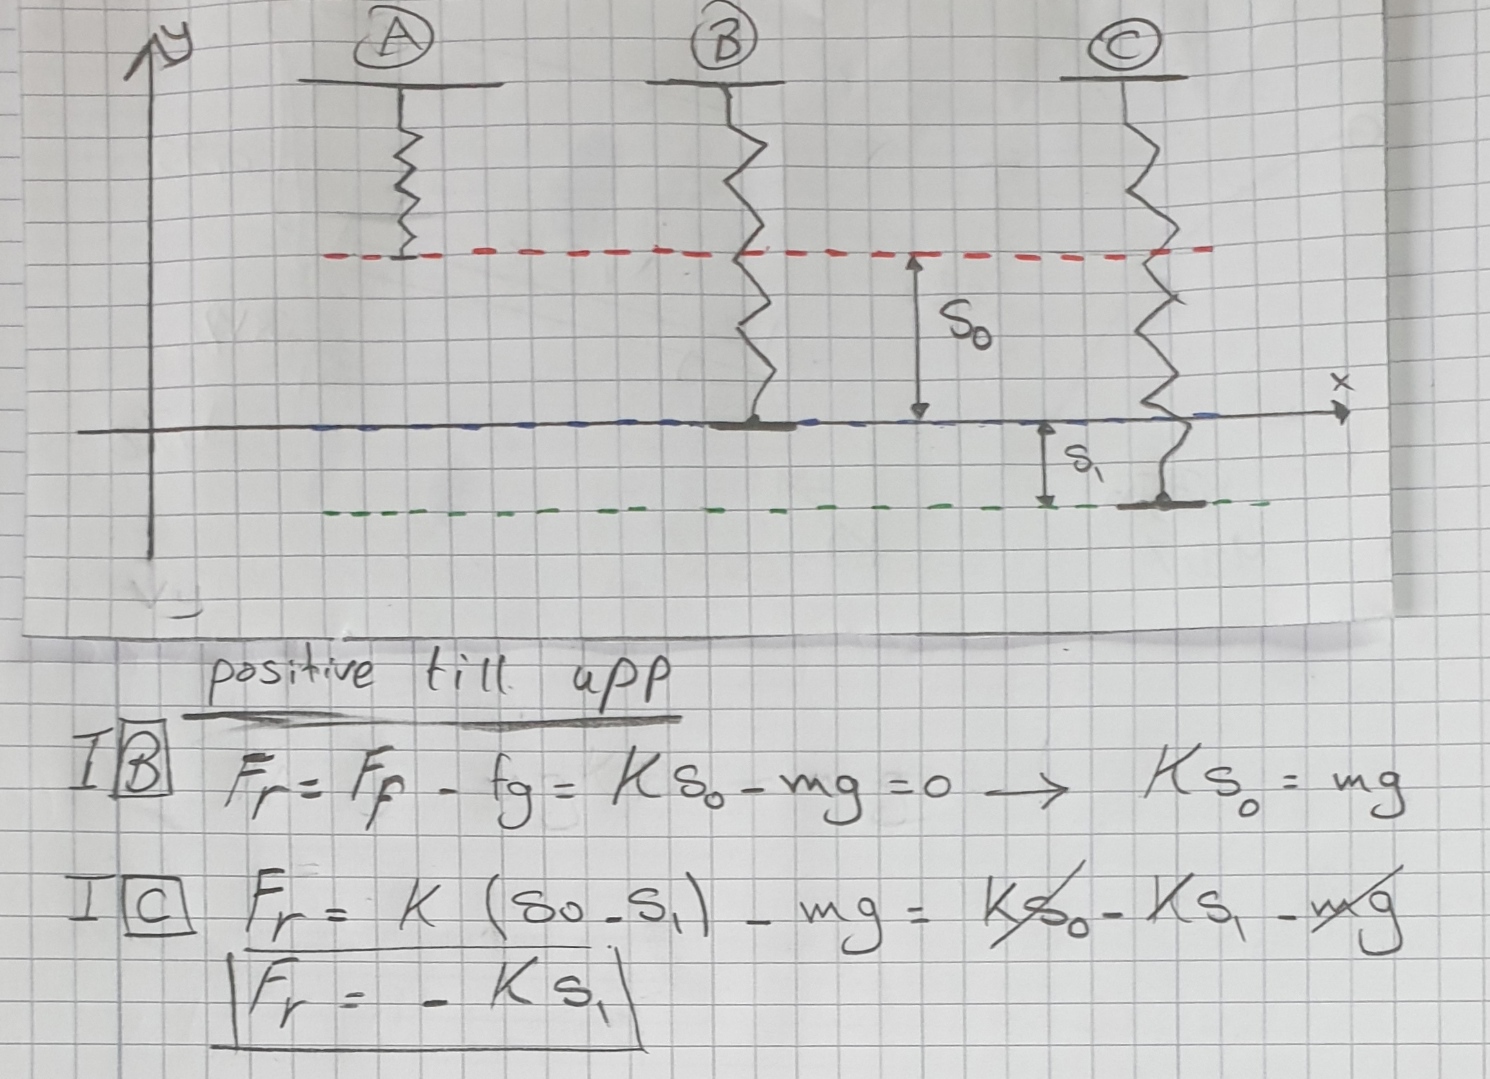 y A B C
S₀
x
S₁
positive till upp
I B Fr = Ff - fg = KS₀ - mg = 0 → KS₀ = mg
I C Fr = K (S₀ - S₁) - mg = KS₀ - KS₁ - mg
Fr = - KS₁